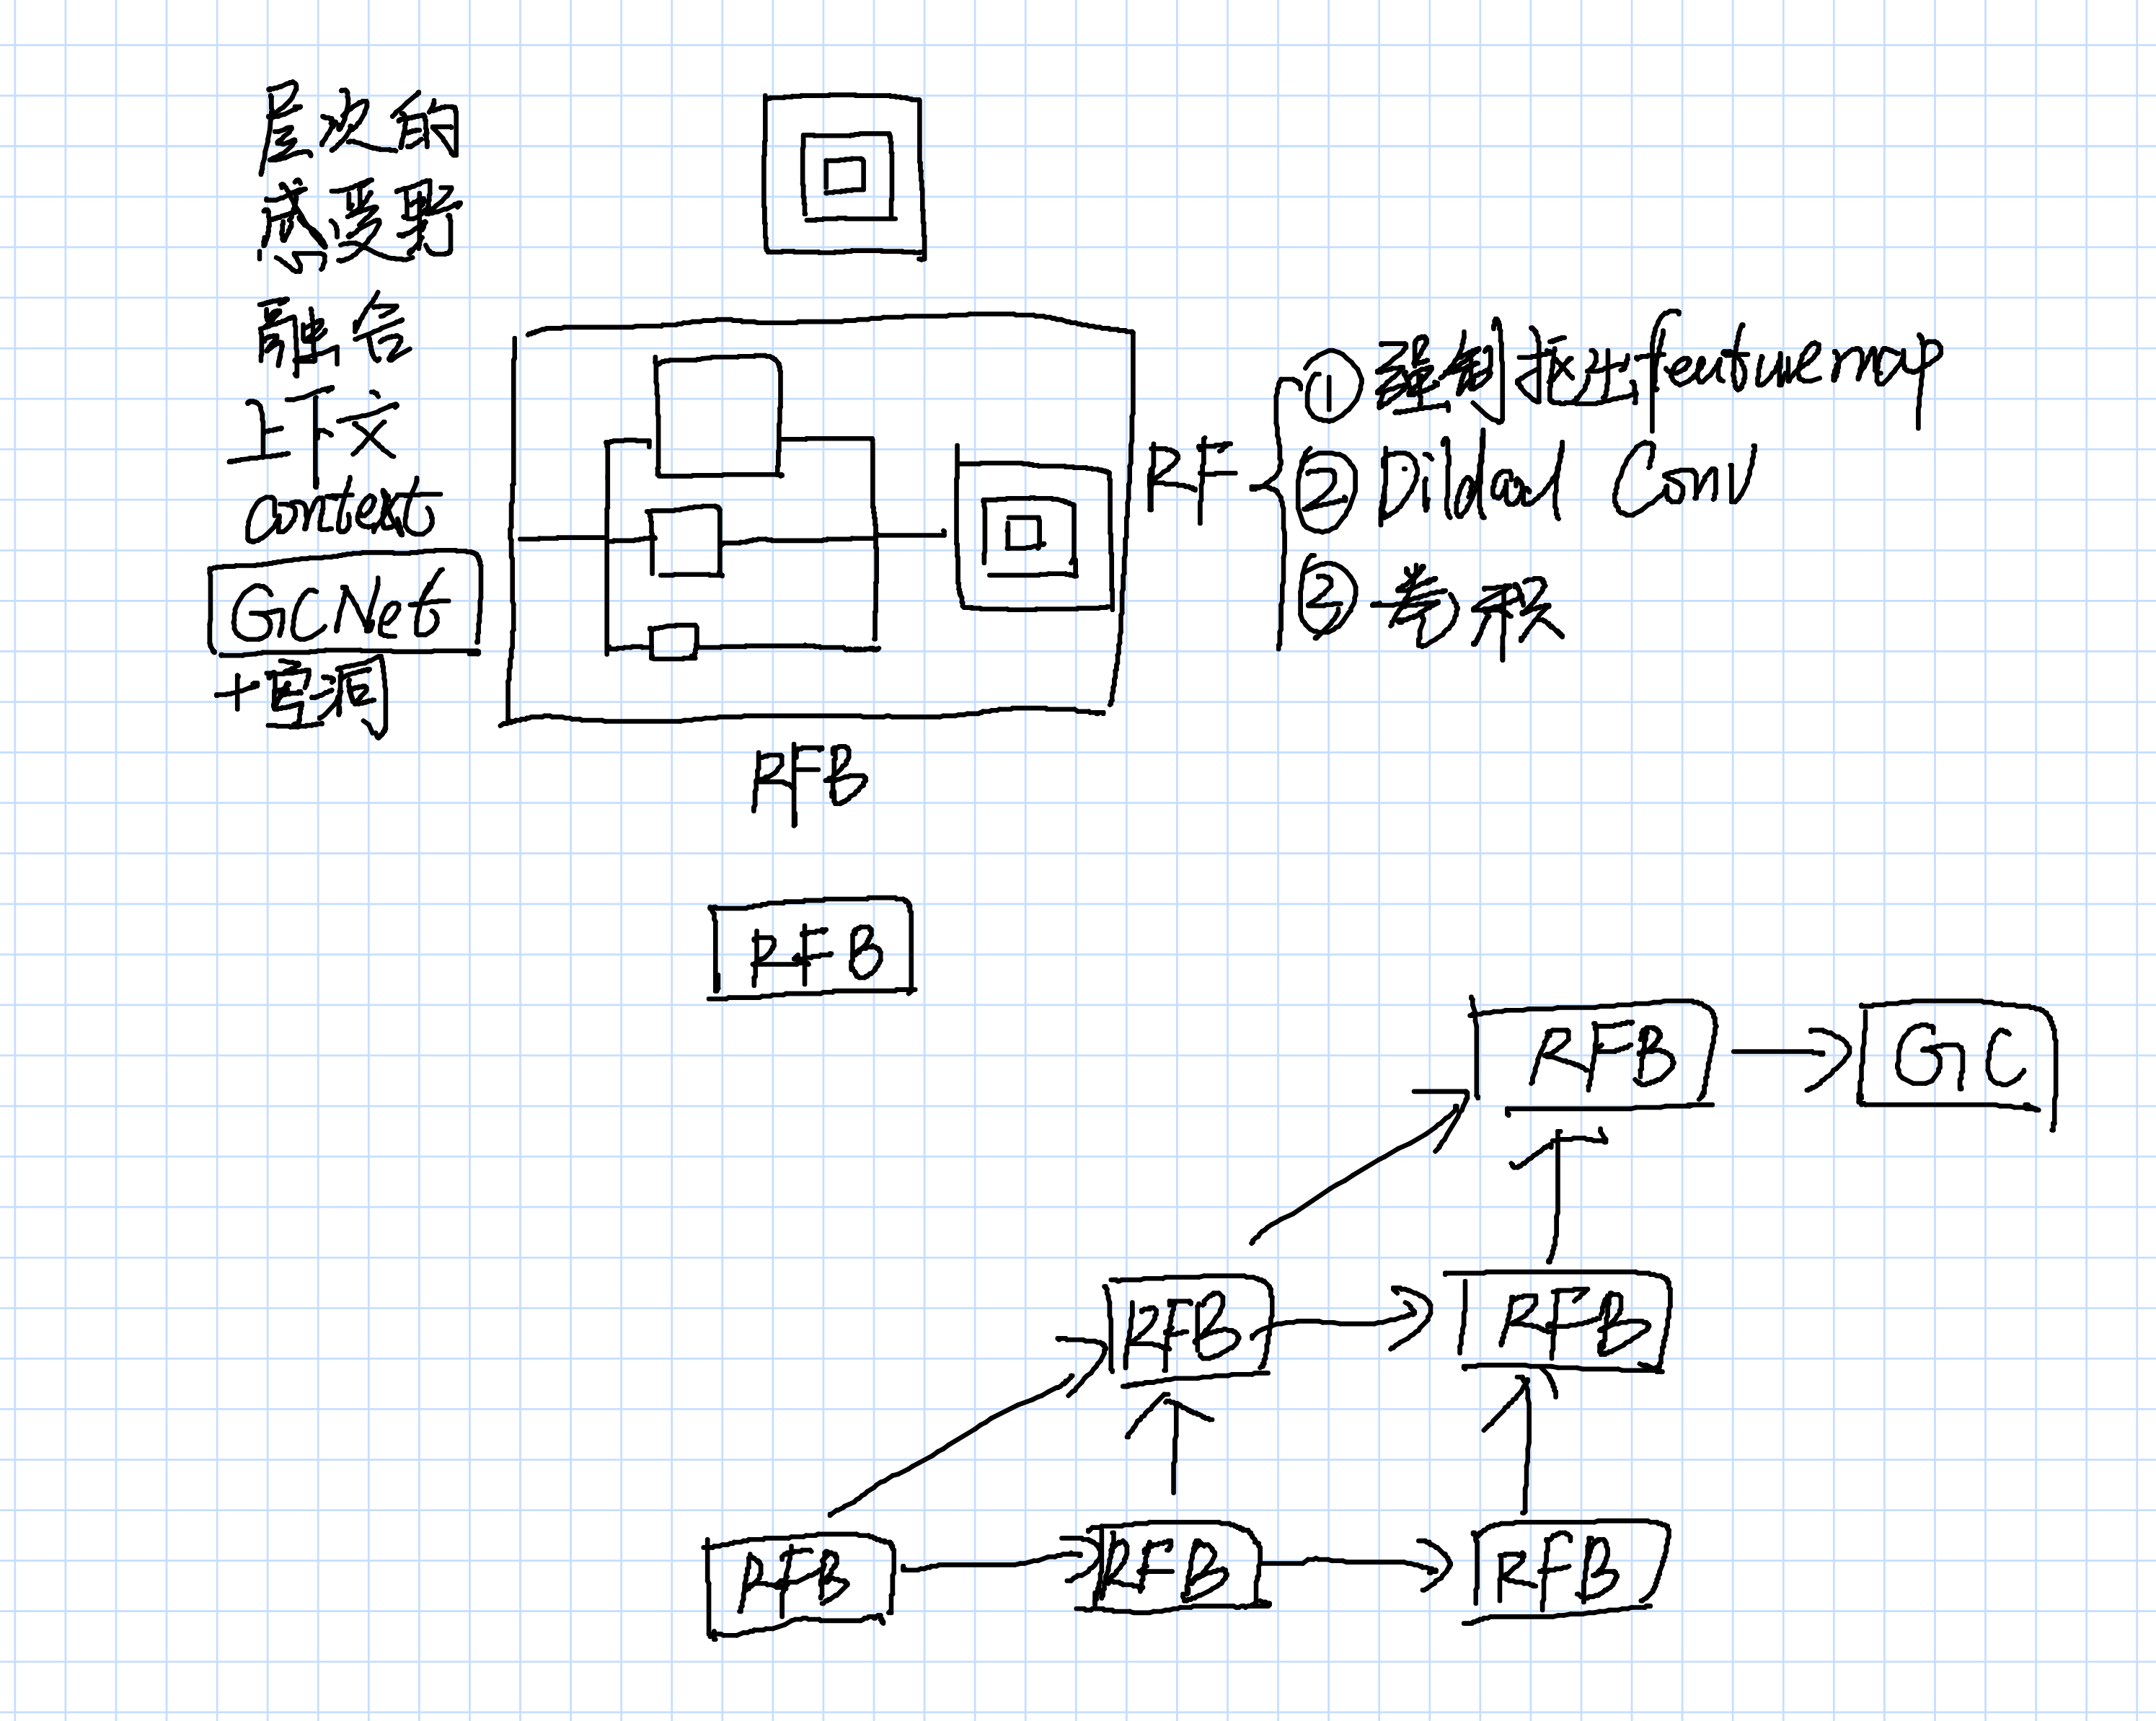 层次的
感受野
融合
上下文
context
GCNet
+空洞
RFB
RF
① 强制抠出featuremap
② Dilated Conv
② 卷积
RFB
RFB
GC
RFB
RFB
RFB
RFB
RFB